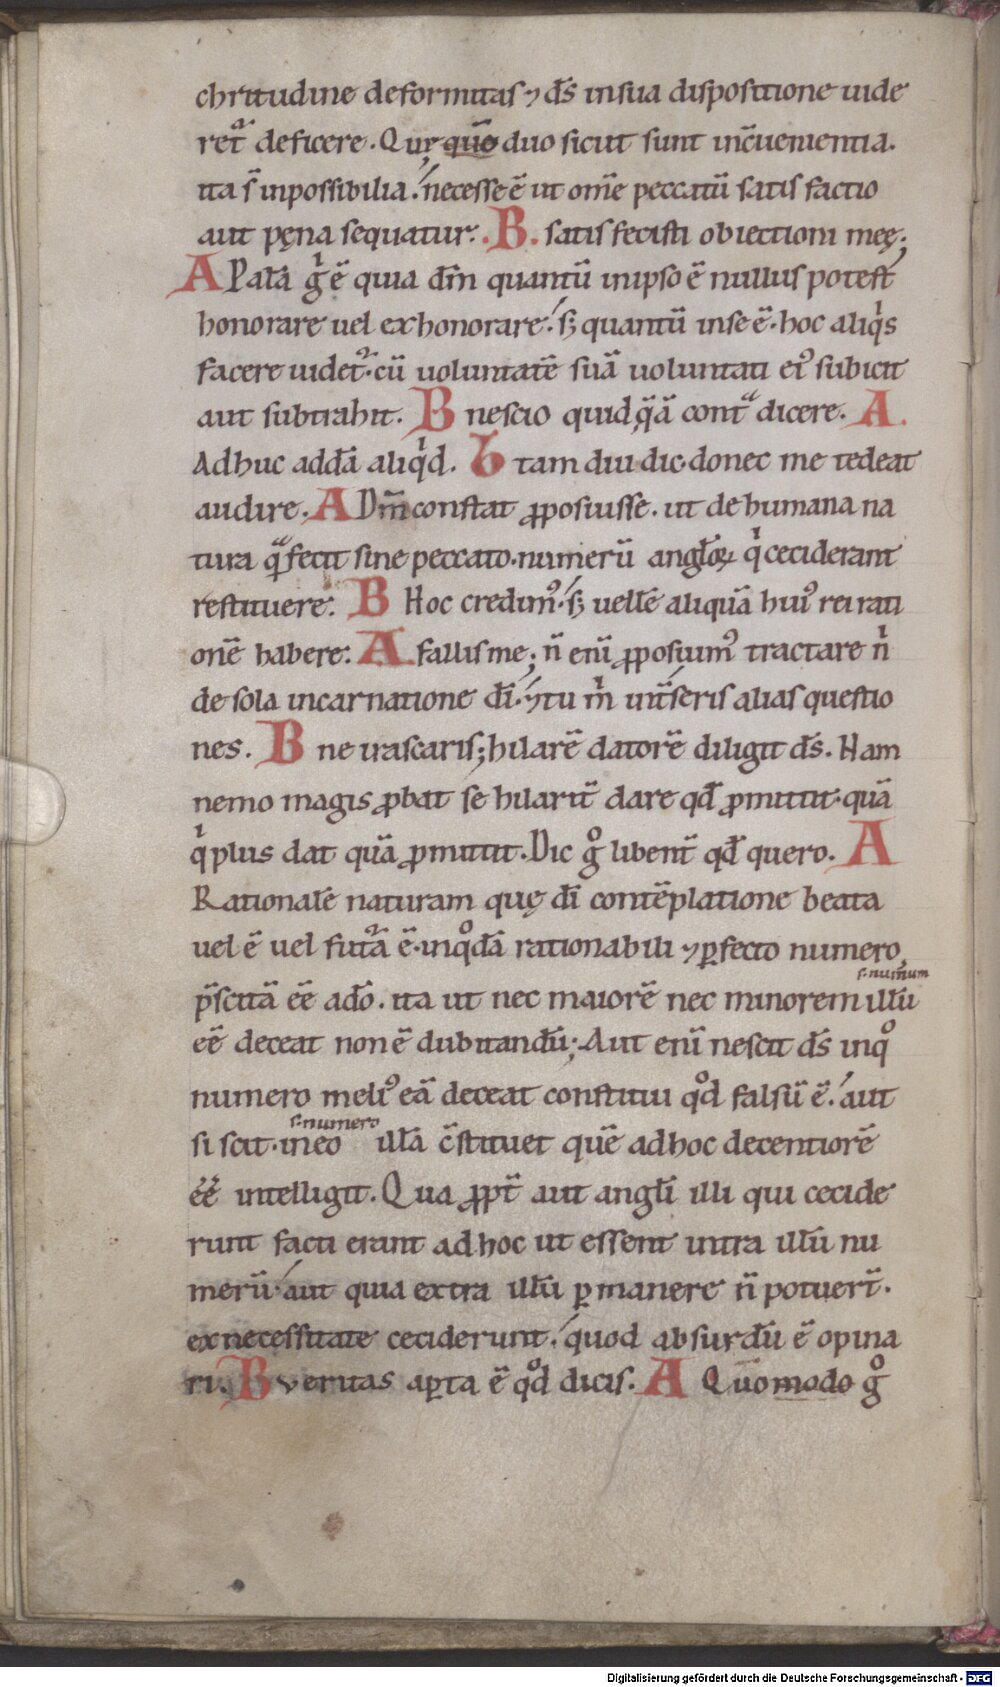 chritudine deformitas ⁊ ds̄ insua dispositione uide
retᷣ deficere. Quę quō duo sicut sunt incōuenientia.
ita s̄ inpossibilia. necesse ē ut om̄e peccatū satis factio
aut pęna sequatur. .B. satis fecisti obiectioni meę;
A Palā gͥ ē quia dm̄ quantū inipso ē nullus potest
honorare uel exhonorare. sꝫ quantū inse ē. hoc aliqͥs
facere uidetᷣ. cū uoluntatē suā uoluntati eiꝰ subicit
aut subtrahit. B nescio quid q̄ā contᵃ dicere. A.
Adhuc addā aliqͥd. b tam diu dic. donec me tedeat
audire. A Dm̄ constat ꝓposuisse. ut de humana na
tura qᵃ̄ fecit sine peccato. numerū angl̄oꝝ qͥ ceciderant
restituere. B Hoc credimꝰ. sꝫ uellē aliquā huiꝰ rei rati
onē habere. A fallis me; n̄ enī ꝓposuimꝰ tractare nͥ
de sola incarnatione dī. ⁊ tu mͥ int̄seris alias questio
nes. B ne irascaris; hilarē datorē diligit ds̄. Nam
nemo magis ꝓbat se hilarit̄ dare qd̄ ꝓmittit. quā
qͥ plus dat quā ꝓmittit. Dic gͦ libent̄ qd̄ quero. A
Rationalē naturam quę dī contēplatione beata
uel ē uel futᷣa ē. inqͦdā rationabili ⁊ ꝑfecto numero
p̄scitā eē adō. ita ut nec maiorē nec minorem illū
s. numerum
eē deceat non ē dubitandū; Aut enī nescit ds̄ inqͦ
numero meliꝰ eā deceat constitui qͦd falsū ē. aut
si scit. in eo illā c̄stituet quē adhoc decentiorē
s. numero
eē intelligit. Qua ꝓpt̄ aut angl̄i illi qui cecide
runt facti erant adhoc ut essent intra illū nu
merū. aut quia extra illū ꝑmanere n̄ potuer̄t.
ex necessitate ceciderunt. quod absurdū ē opina
ri. B veritas aꝑta ē qͦd dicis. A Quomodo gͦ
Digitalisierung gefördert durch die Deutsche Forschungsgemeinschaft - DFG